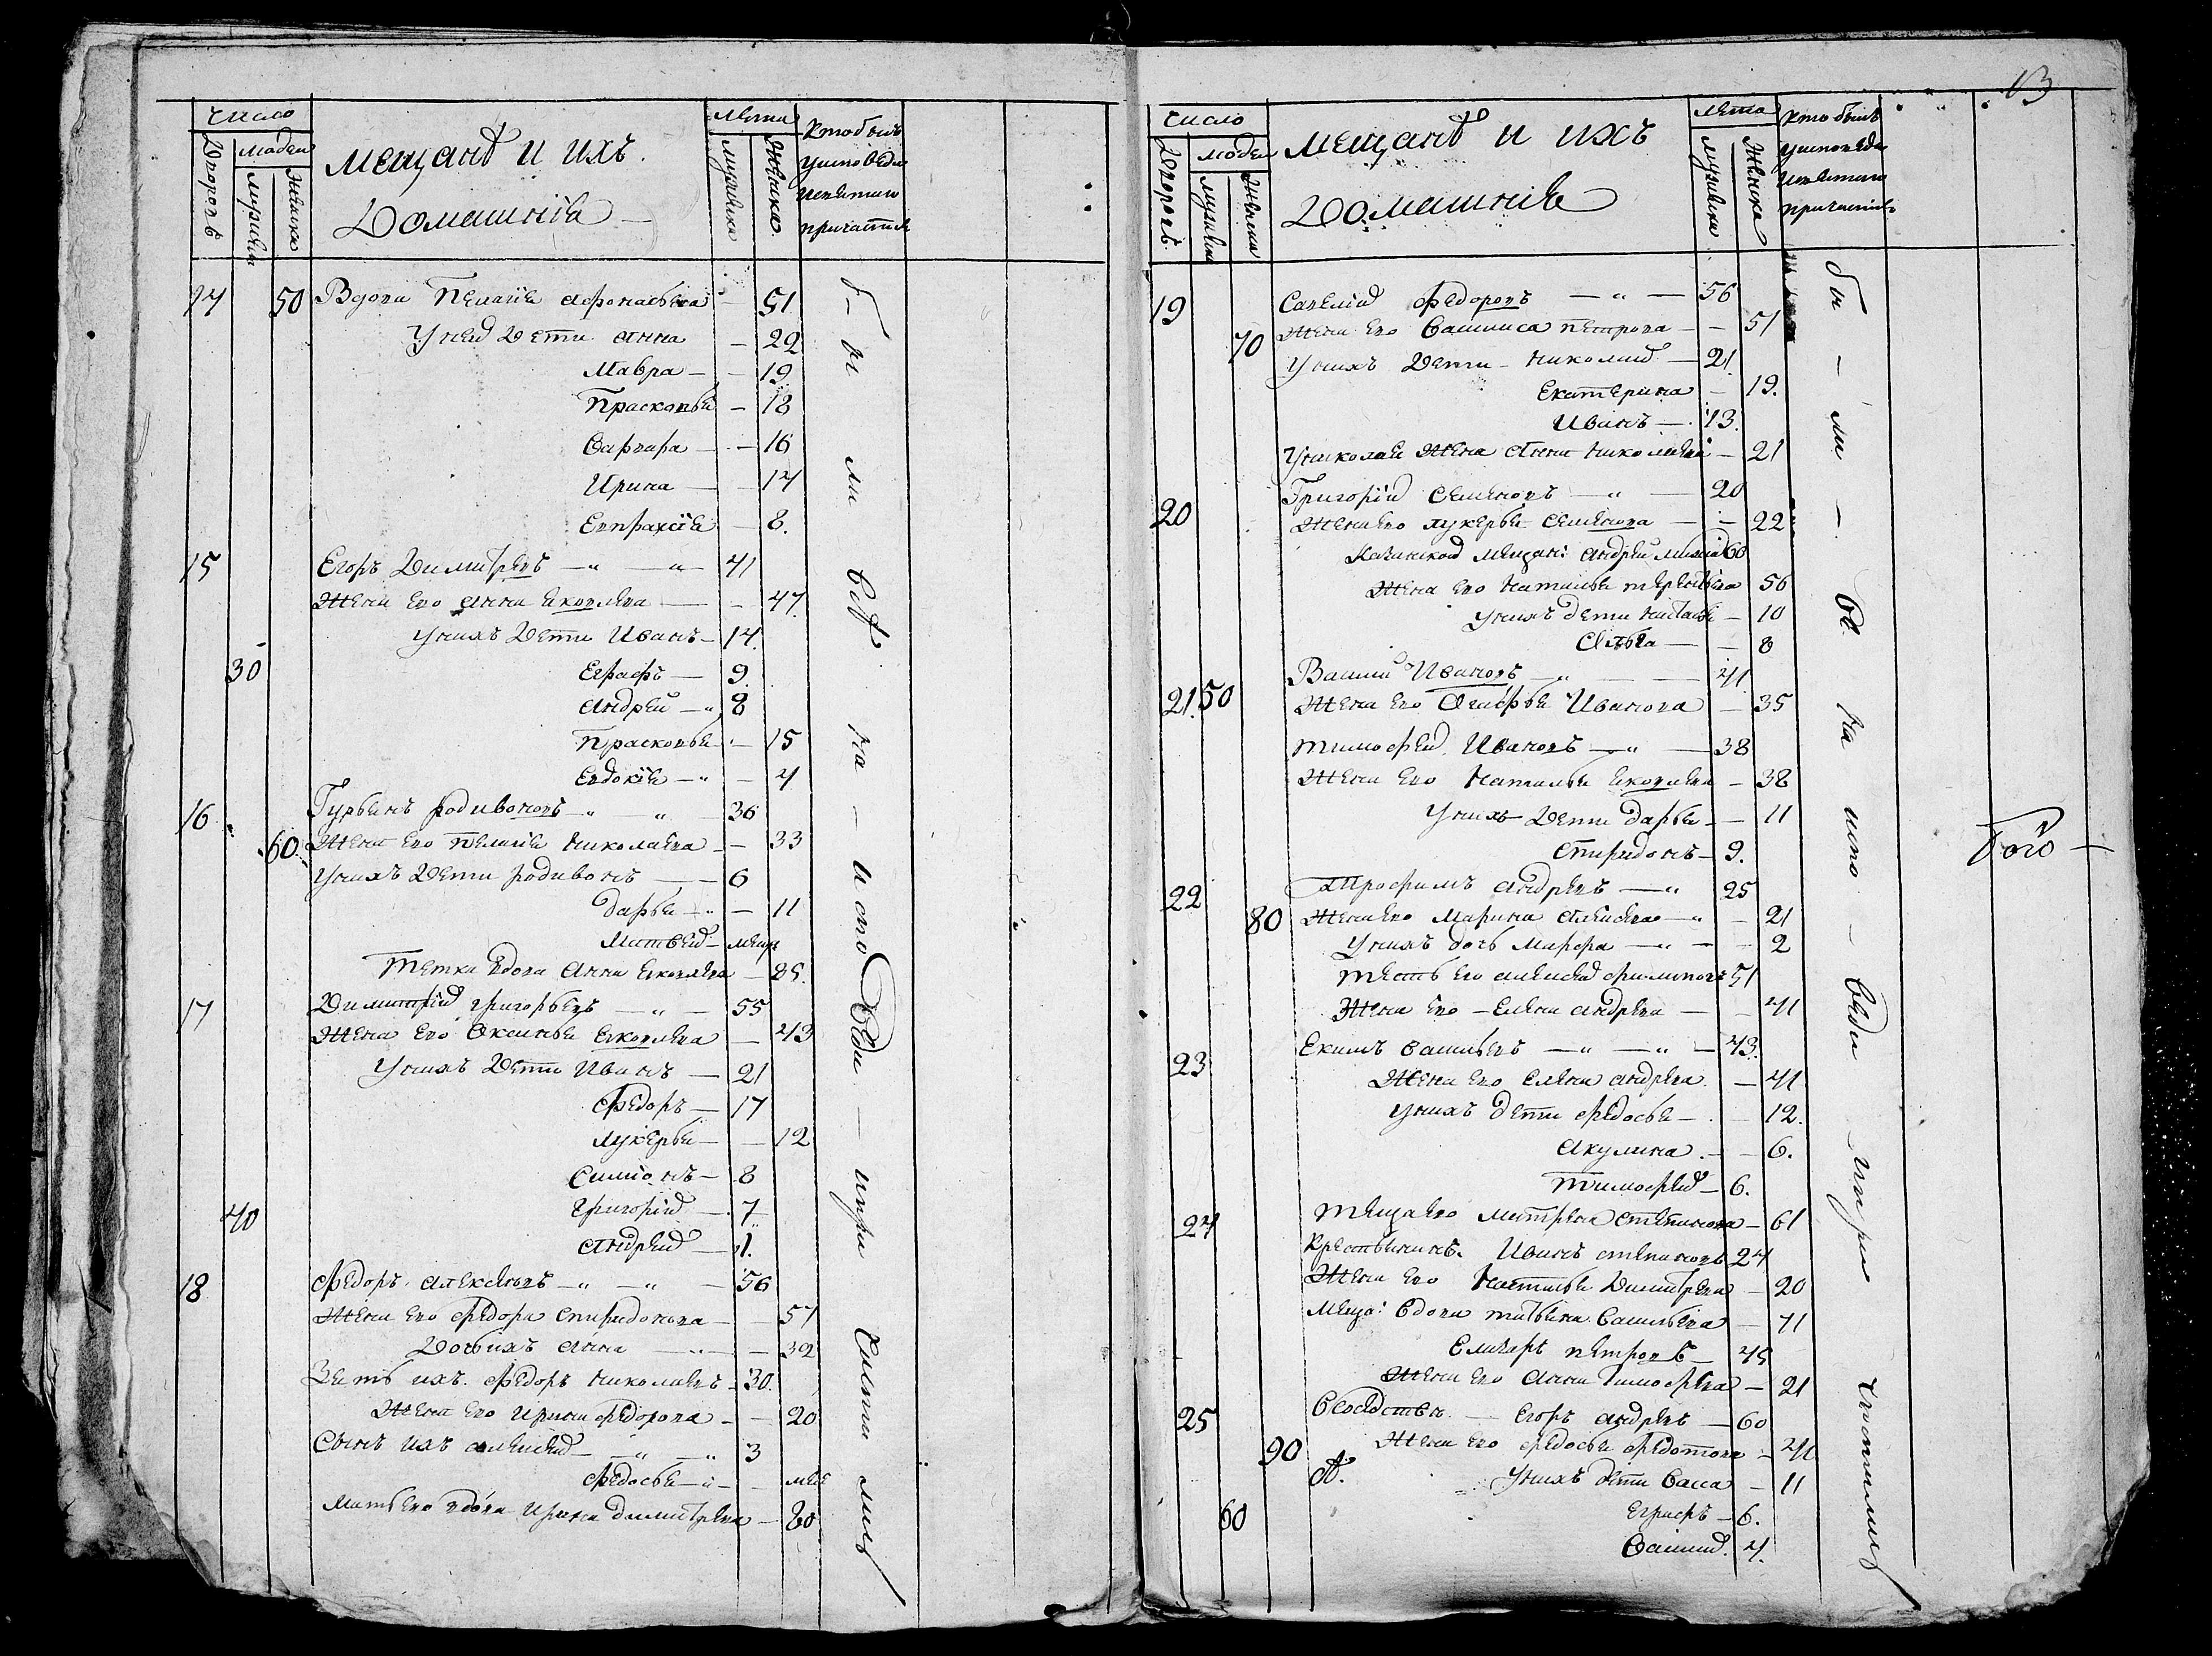 Число
Дворовъ
Людей
мужеска
женска
Мещанъ и ихъ
Домашнiя
Лета
мужеска
женска
Кто былъ
у исповеди
и святаго
причастия
14 50 Вдова Пелагiя Афонасьева — 51
У ней Дети Анна — 22
Мавра — 19
Прасковья — 18
Варвара — 16
Ирина — 14
Евпраксiя — 8.
15 Егоръ Димитревъ — 41
Жена ево Анна Яковлева — 47
У нихъ Дети Иванъ — 14.
30 Еграфъ — 9
Андрей — 8
Прасковья — 15
Евдокiя — 4
16 Гурьянъ Родивоновъ — 36
60 Жена ево Пелагiя Николаева — 33
У нихъ Дети Родивонъ — 6
Дарья — 11
Матвей —
Тетка вдова Анна Яковлева — 85.
17 Димитрiй Григорьевъ — 55
Жена ево Оксинья Яковлева — 43
У нихъ Дети Иванъ — 21
Федоръ — 17
Лукерья — 12
Симионъ — 8
40 Григорiй — 7
Андрей — 1.
18 Федоръ Алексеевъ — 56
Жена ево Федора Спиридонова — 57
Дочь ихъ Анна — 32
Зять ихъ Федоръ Николаевъ — 30.
Жена ево Ирина Федорова — 20
Сынъ ихъ Алексей — 3
Федосья —
Мать ево вдова Ирина Димитрева — 80
бы ли все на исповеди и при частиль
13
Число
Дворовъ
людей
мужеска
женска
Мещанъ и ихъ
Домашнiя
лета
мужеска
женска
Кто былъ
у исповеди
и святаго
причастия
19 Савелiй Федоровъ — 56
70 Жена ево Василиса Петрова — 51
У нихъ Дети Николай — 21
Екатерина — 19.
Иванъ — 13.
У Николая Жена Анна Николаева — 21
20 Григорiй Семеновъ — 20
Жена ево Лукерья Семенова — 22
мещан: Андрей 60
Жена ево Наталья Терентьева 56
У нихъ Дети — 10
— 8
21. 50 Василий Ивановъ — 41
Жена ево Агафья Иванова — 35
Тимофей Ивановъ — 38
Жена ево Наталья Яковлева — 38
У нихъ Дети Дарья — 11
Спиридонъ — 9.
22 Трофимъ Андревъ — 25
80 Жена ево Марина Алексева — 21
У нихъ дочь Марфа — 2
Тесть ево Алексей Филиповъ 51
Жена ево — Елена Андрева — 41
23 Екимъ Васильевъ — 43.
Жена ево Елена Андрева — 41
У нихъ Дети Федосья — 12.
Акулина — 6.
Тимофей — 6.
24 Теща ево Матрена Степанова — 61
Крестьянинъ Иванъ Степановъ 24
Жена ево Наталья Димитрева — 20
Меща: Вдова Татьяна Васильева — 71
Елизаръ Петровъ — 45
Жена ево Анна Тимофева — 21
25 Егоръ Андревъ — 60
90 Жена ево Федосья Федотова — 41
У нихъ Дети Васса — 11
60 Еграфъ — 6.
Василий 4.
бы — ли — все на испо — веди и при частиль
Того —